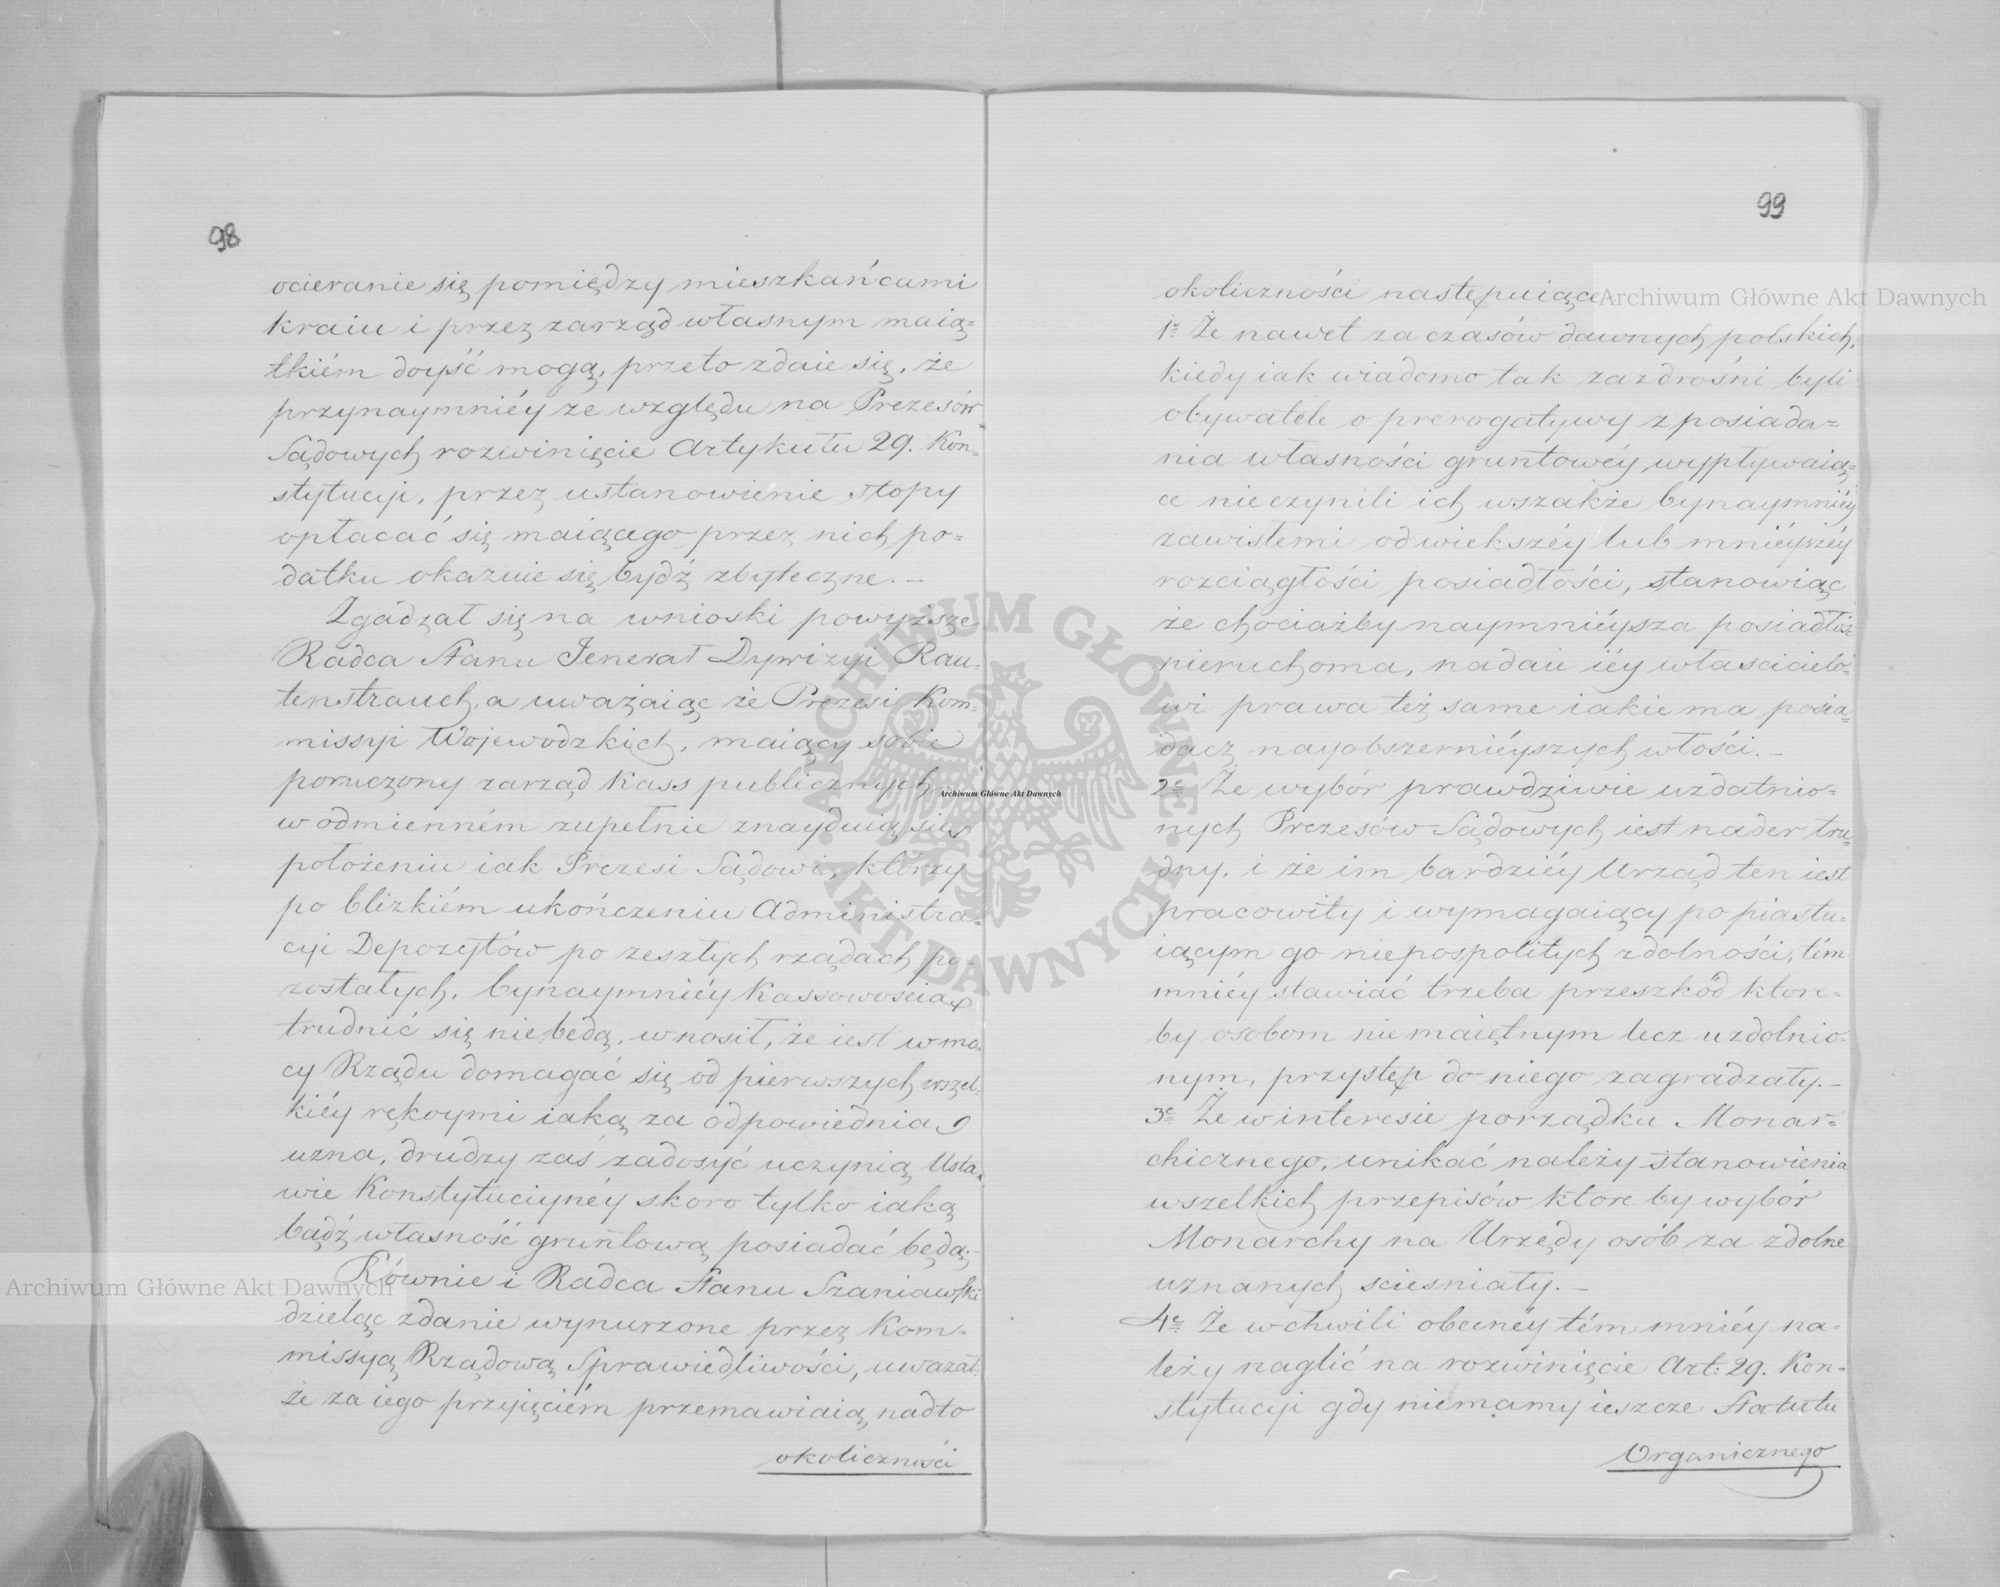 98
ocieranie się pomiędzy mieszkańcami
kraiu i przez zarząd własnym maią=
tkiém doyść mogą, przeto zdaie się, że
przynaymniéy ze względu na Prezesów
Sądowych rozwinięcie Artykułu 29. Kon=
stytucyi, przez ustanowienie stopy
opłacać się maiącego przez nich po=
datku okazuie się bydź zbyteczne. —
Zgadzał się na wnioski powyższe
Radca Stanu Jenerał Dywizyi Rau=
tenstrauch, a uważaiąc że Prezesi Kom=
missyi Wojewodzkich, maiący sobie
poruczony zarząd Kass publicznych
w odmienném zupełnie znayduią się
położeniu iak Prezesi Sądowi, którzy
po blizkiém ukończeniu Administra=
cyi Depozytów po zeszłych rządach po=
zostałych, bynaymniéy Kassowością
trudnić się nie będą, wnosił, że iest w mo=
cy Rządu domagać się od pierwszych wszel=
kiéy rękoymi iaką za odpowiednią
uzna, drudzy zaś zadosyć uczynią Usta=
wie Konstytucyinéy skoro tylko iaką
bądź własność gruntową posiadać będą. —
Równie i Radca Stanu Szaniawski
dzieląc zdanie wynurzone przez Kom=
missyą Rządową Sprawiedliwości, uważał:
że za iego przyięciém przemawiaią nadto
okoliczności
99
okoliczności następuiące
1e Że nawet za czasów dawnych polskich,
kiedy iak wiadomo tak zazdrośni byli
obywatele o prerogatywy z posiada=
nia własności gruntowéy wypływaią=
ce nie czynili ich wszakże bynaymniéy
zawisłemi od wiekszéy lub mniéyszéy
rozciągłości posiadłości, stanowiąc
że chociażby naymniéysza posiadłość
nieruchoma, nadaie iéy właścicielo=
wi prawa też same iakie ma posia=
dacz nayobszerniéyszych włości. —
2e Że wybór prawdziwie uzdatnio=
nych Prezesów Sądowych iest nader tru=
dny, i że im bardziéy Urząd ten iest
pracowity i wymagaiący po piastu=
iącym go niepospolitych zdolności, tém
mniéy stawiać trzeba przeszkód które=
by osobom niemaiętnym lecz uzdolnio=
nym, przystęp do niego zagradzały. —
3e Że w interesie porządku Monar=
chicznego, unikać należy stanowienia
wszelkich przepisów które by wybór
Monarchy na Urzędy osób za zdolne
uznanych scieśniały. —
4e Że w chwili obecnéy tém mniéy na=
leży naglić na rozwinięcie Art: 29. Kon=
stytucyi gdy niemamy ieszcze Statutu
Organicznego
Archiwum Główne Akt Dawnych
ARCHIWUM GŁÓWNE · AKT DAWNYCH ·
Archiwum Główne Akt Dawnych
Archiwum Główne Akt Dawnych